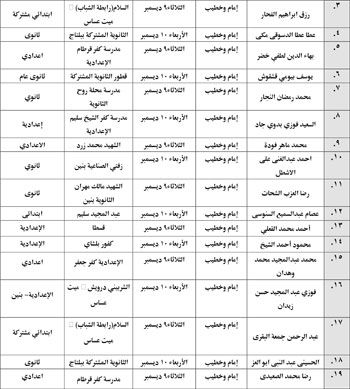 ٣. رزق ابراهيم الفخار إمام وخطيب الثلاثاء ٩ ديسمبر السلام(رابطة الشباب) ميت عساس ابتدائي مشتركة
٤. عطا عطا الدسوقى مكى إمام وخطيب الأربعاء ١٠ ديسمبر الثانوية المشتركة ببلتاج ثانوى
٥. بهاء الدين لطفي خضر إمام وخطيب الثلاثاء ٩ ديسمبر مدرسة كفر قرطام الإعدادية اعدادي
٦. يوسف بيومي قشقوش إمام وخطيب الأربعاء ١٠ ديسمبر قطور الثانوية المشتركة ثانوى عام
٧. محمد رمضان النحار إمام وخطيب الثلاثاء ٩ ديسمبر مدرسة محلة روح الثانوية ثانوي
٨. السعيد فوزي بدوي جاد إمام وخطيب الأربعاء ١٠ ديسمبر مدرسة كفر الشيخ سليم الإعدادية إعدادية
٩. محمد ماهر فودة إمام وخطيب الثلاثاء ٩ ديسمبر الشهيد محمد زرد الاعدادي
١٠. احمد عبدالغنى على الاشطل إمام وخطيب الأربعاء ١٠ ديسمبر زفتي الصناعية بنين ثانوي
١١. رضا العزب الشحات إمام وخطيب الثلاثاء ٩ ديسمبر الشهيد مالك مهران الثانوية بنين ثانوى
١٢. عصام عبدالسميع السنوسى إمام وخطيب الأربعاء ١٠ ديسمبر عبد المجيد سليم ابتدائى
١٣. أحمد محمد القعلي إمام وخطيب الثلاثاء ٩ ديسمبر قسطا الإعدادية
١٤. محمود أحمد الشيخ إمام وخطيب الأربعاء ١٠ ديسمبر كفور بلشاي الإعدادية
١٥. محمد عبدالمجيد محمد وهدان إمام وخطيب الثلاثاء ٩ ديسمبر الإعدادية كفر جعفر اعدادي
١٦. فوزي عبد المجيد حسن زيدان إمام وخطيب الأربعاء ١٠ ديسمبر الشربيني درويش ميت عساس الإعدادية– بنين
١٧. عبد الرحمن جمعة البقرى إمام وخطيب الثلاثاء ٩ ديسمبر السلام(رابطة الشباب) ميت عساس ابتدائي مشتركة
١٨. الحسينى عبد النبى ابو العز إمام وخطيب الأربعاء ١٠ ديسمبر الثانوية المشتركة ببلتاج ثانوى
١٩. رضا محمد الصعيدى إمام وخطيب الثلاثاء ٩ ديسمبر مدرسة كفر قرطام اعدادي